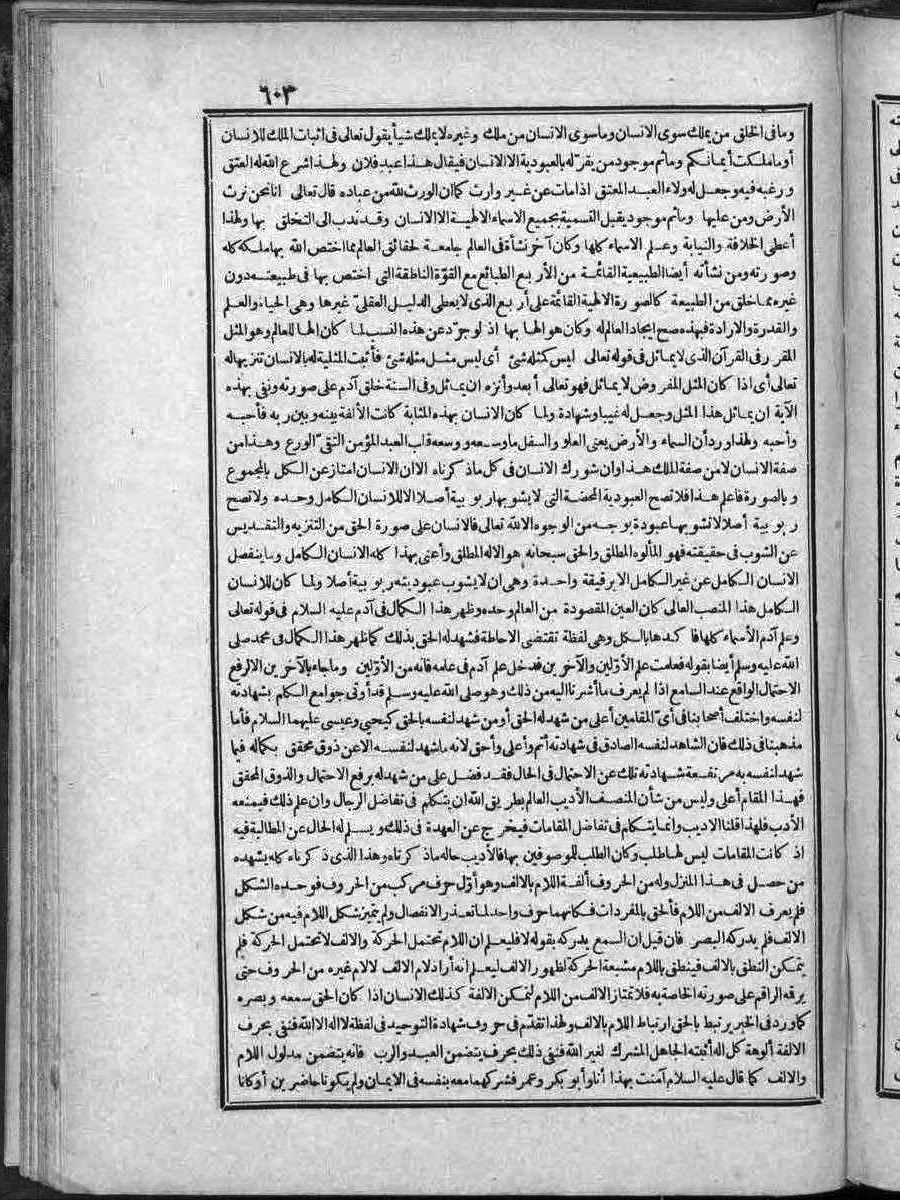 ٦٠٣
وما في الخلق من يملك سوى الانسان وما سوى الانسان من ملك وغيره لا يملك شيأ يقول تعالى في اثبات الملك للانسان
أو ما ملكت أيمانكم وما ثم موجود من يقرّ له بالعبودية الا الانسان فيقال هذا عبد فلان ولهذا شرع الله له العتق
ورغبه فيه وجعل له ولاء العبد المعتق اذا مات عن غير وارث كما ان الورث لله من عباده قال تعالى انا نحن نرث
الأرض ومن عليها وما ثم موجود يقبل التسمية بجميع الاسماء الالهية الا الانسان وقد ندب الى التخلق بها ولهذا
أعطى الخلافة والنيابة وعلم الاسماء كلها وكان آخر نشأة في العالم جامعة لحقائق العالم مما اختص الله بها ملكه كله
وصورته ومن نشأته أيضا الطبيعية القائمة من الأربع الطبائع مع القوّة الناطقة التي اختص بها في طبيعته دون
غيره مما خلق من الطبيعة كالصورة الالهية القائمة على أربع الذي لا يعطى الدليل العقليّ غيرها وهى الحياة والعلم
والقدرة والارادة فبهذه صح ايجاد العالم له وكان هو الها بها اذ لو جرّد عن هذه النسب لما كان الها للعالم وهو المثل
المقرر في القرآن الذى لا يماثل في قوله تعالى ليس كمثله شئ أى ليس مثل مثله شئ فأثبت المثلية له بالانسان تنزيها له
تعالى أى اذا كان المثل المفروض لا يماثل فهو تعالى أبعد وأنزه ان يماثل وفي السنة خلق آدم على صورته ونفى بهذه
الآية ان يماثل هذا المثل وجعل له غيبا وشهادة ولما كان الانسان بهذه المثابة كانت الألفة بينه وبين ربه فأحبه
وأحبه ولهذا ورد أن السماء والأرض يعنى العلو والسفل ما وسعه ووسعه قلب العبد المؤمن التقىّ الورع وهذا من
صفة الانسان لا من صفة الملك هذا وان شورك الانسان في كل ما ذكرناه الا ان الانسان امتاز عن الكل بالمجموع
وبالصورة فاعلم هذا فلا تصح العبودية المحضة التى لا يشوبها ربوبية أصلا الا للانسان الكامل وحده ولا تصح
ربوبية أصلا لا تشوبها عبودة بوجه من الوجوه الا لله تعالى فالانسان على صورة الحق من التنزيه والتقديس
عن الشوب في حقيقته فهو المألوه المطلق والحق سبحانه هو الاله المطلق وأعنى بهذا كله الانسان الكامل وما ينفصل
الانسان الكامل عن غير الكامل الا برقيقة واحدة وهى ان لا يشوب عبوديته ربوبية أصلا ولما كان للانسان
الكامل هذا المنصب العالى كان العين المقصودة من العالم وحده وظهر هذا الكمال في آدم عليه السلام في قوله تعالى
وعلم آدم الأسماء كلها فأكدها بالكل وهى لفظة تقتضى الاحاطة فشهد له الحق بذلك كما ظهر هذا الكمال في محمد صلى
الله عليه وسلم أيضا بقوله فعلمت علم الأوّلين والآخرين فدخل علم آدم في علمه فانه من الأوّلين وما جاء بالآخرين الا لرفع
الاحتمال الواقع عند السامع اذا لم يعرف ما أشرنا اليه من ذلك وهو صلى الله عليه وسلم قد أوتى جوامع الكلم بشهادته
لنفسه واختلف أصحابنا في أىّ المقامين أعلى من شهد له الحق أو من شهد لنفسه بالحق كيحيى وعيسى عليهما السلام فأما
مذهبنا في ذلك فان الشاهد لنفسه الصادق في شهادته أتم وأعلى وأحق لانه ما شهد لنفسه الا عن ذوق محقق بكماله فيما
شهد لنفسه به مرتفعة شهادته تلك عن الاحتمال في الحال فقد فضل على من شهد له برفع الاحتمال والذوق المحقق
فهذا المقام أعلى وليس من شأن المنصف الأديب العالم بطريق الله ان يتكلم في تفاضل الرجال وان علم ذلك فيمنعه
الأدب فلهذا قلنا الاديب وانما يتكلم في تفاضل المقامات فيخرج عن العهدة في ذلك ويسلم له الحال عن المطالبة فيه
اذ كانت المقامات ليس لها طلب وكان الطلب للموصوفين بها فالأديب حاله ما ذكرناه وهذا الذى ذكرناه كله يشهده
من حصل في هذا المنزل وله من الحروف ألفة اللام بالالف وهو أوّل حرف مركب من الحروف فوحده الشكل
فلم يعرف الالف من اللام فألحق بالمفردات فكانهما حرف واحد لما تعذر الانفصال ولم يتميز شكل اللام فيه من شكل
الالف فلم يدركه البصر فان قيل ان السمع يدركه بقوله لا فليعلم ان اللام تحتمل الحركة والالف لا تحتمل الحركة فلم
يتمكن النطق بالالف فينطق باللام مشبعة الحركة لظهور الالف ليعلم انه أراد لام الالف لا لام غيره من الحروف حتى
يرقه الراقم على صورته الخاصة به فلا تمتاز الالف من اللام لتمكن الالفة كذلك الانسان اذا كان الحق سمعه وبصره
كما ورد في الخبر يرتبط بالحق ارتباط اللام بالالف ولهذا تقدّم في حروف شهادة التوحيد في لفظة لا اله الا الله فنفى بحرف
الالفة ألوهة كل اله أثبته الجاهل المشرك لغير الله فنفى ذلك بحرف يتضمن العبد والرب فانه يتضمن مدلول اللام
والالف كما قال عليه السلام آمنت بهذا أنا وأبو بكر وعمر فشركهما معه بنفسه في الايمان ولم يكونا حاضرين أو كانا